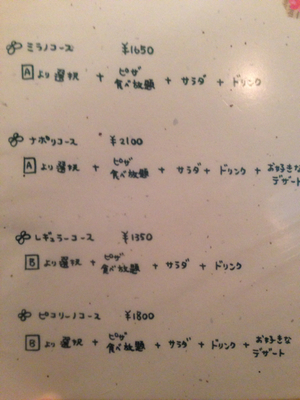 ミラノコース ¥1650
A より選択 + ピザ食べ放題 + サラダ + ドリンク
ナポリコース ¥2100
A より選択 + ピザ食べ放題 + サラダ + ドリンク + お好きなデザート
レギュラーコース ¥1350
B より選択 + ピザ食べ放題 + サラダ + ドリンク
ピコリーノコース ¥1800
B より選択 + ピザ食べ放題 + サラダ + ドリンク + お好きなデザート